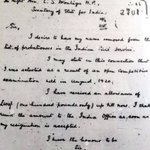 The Right Hon. E. S. Montagu M.P.,
Secretary of State for India.
Sir,
I desire to have my name removed from the
list of probationers in the Indian Civil Service.
I may state in this connection that
I was selected as a result of an open competitive
examination held in August, 1920.
I have received an allowance of
£100/- (one hundred pounds only) up till now. I shall
remit the amount to the India Office as soon as
my resignation is accepted.
I have the honour to be